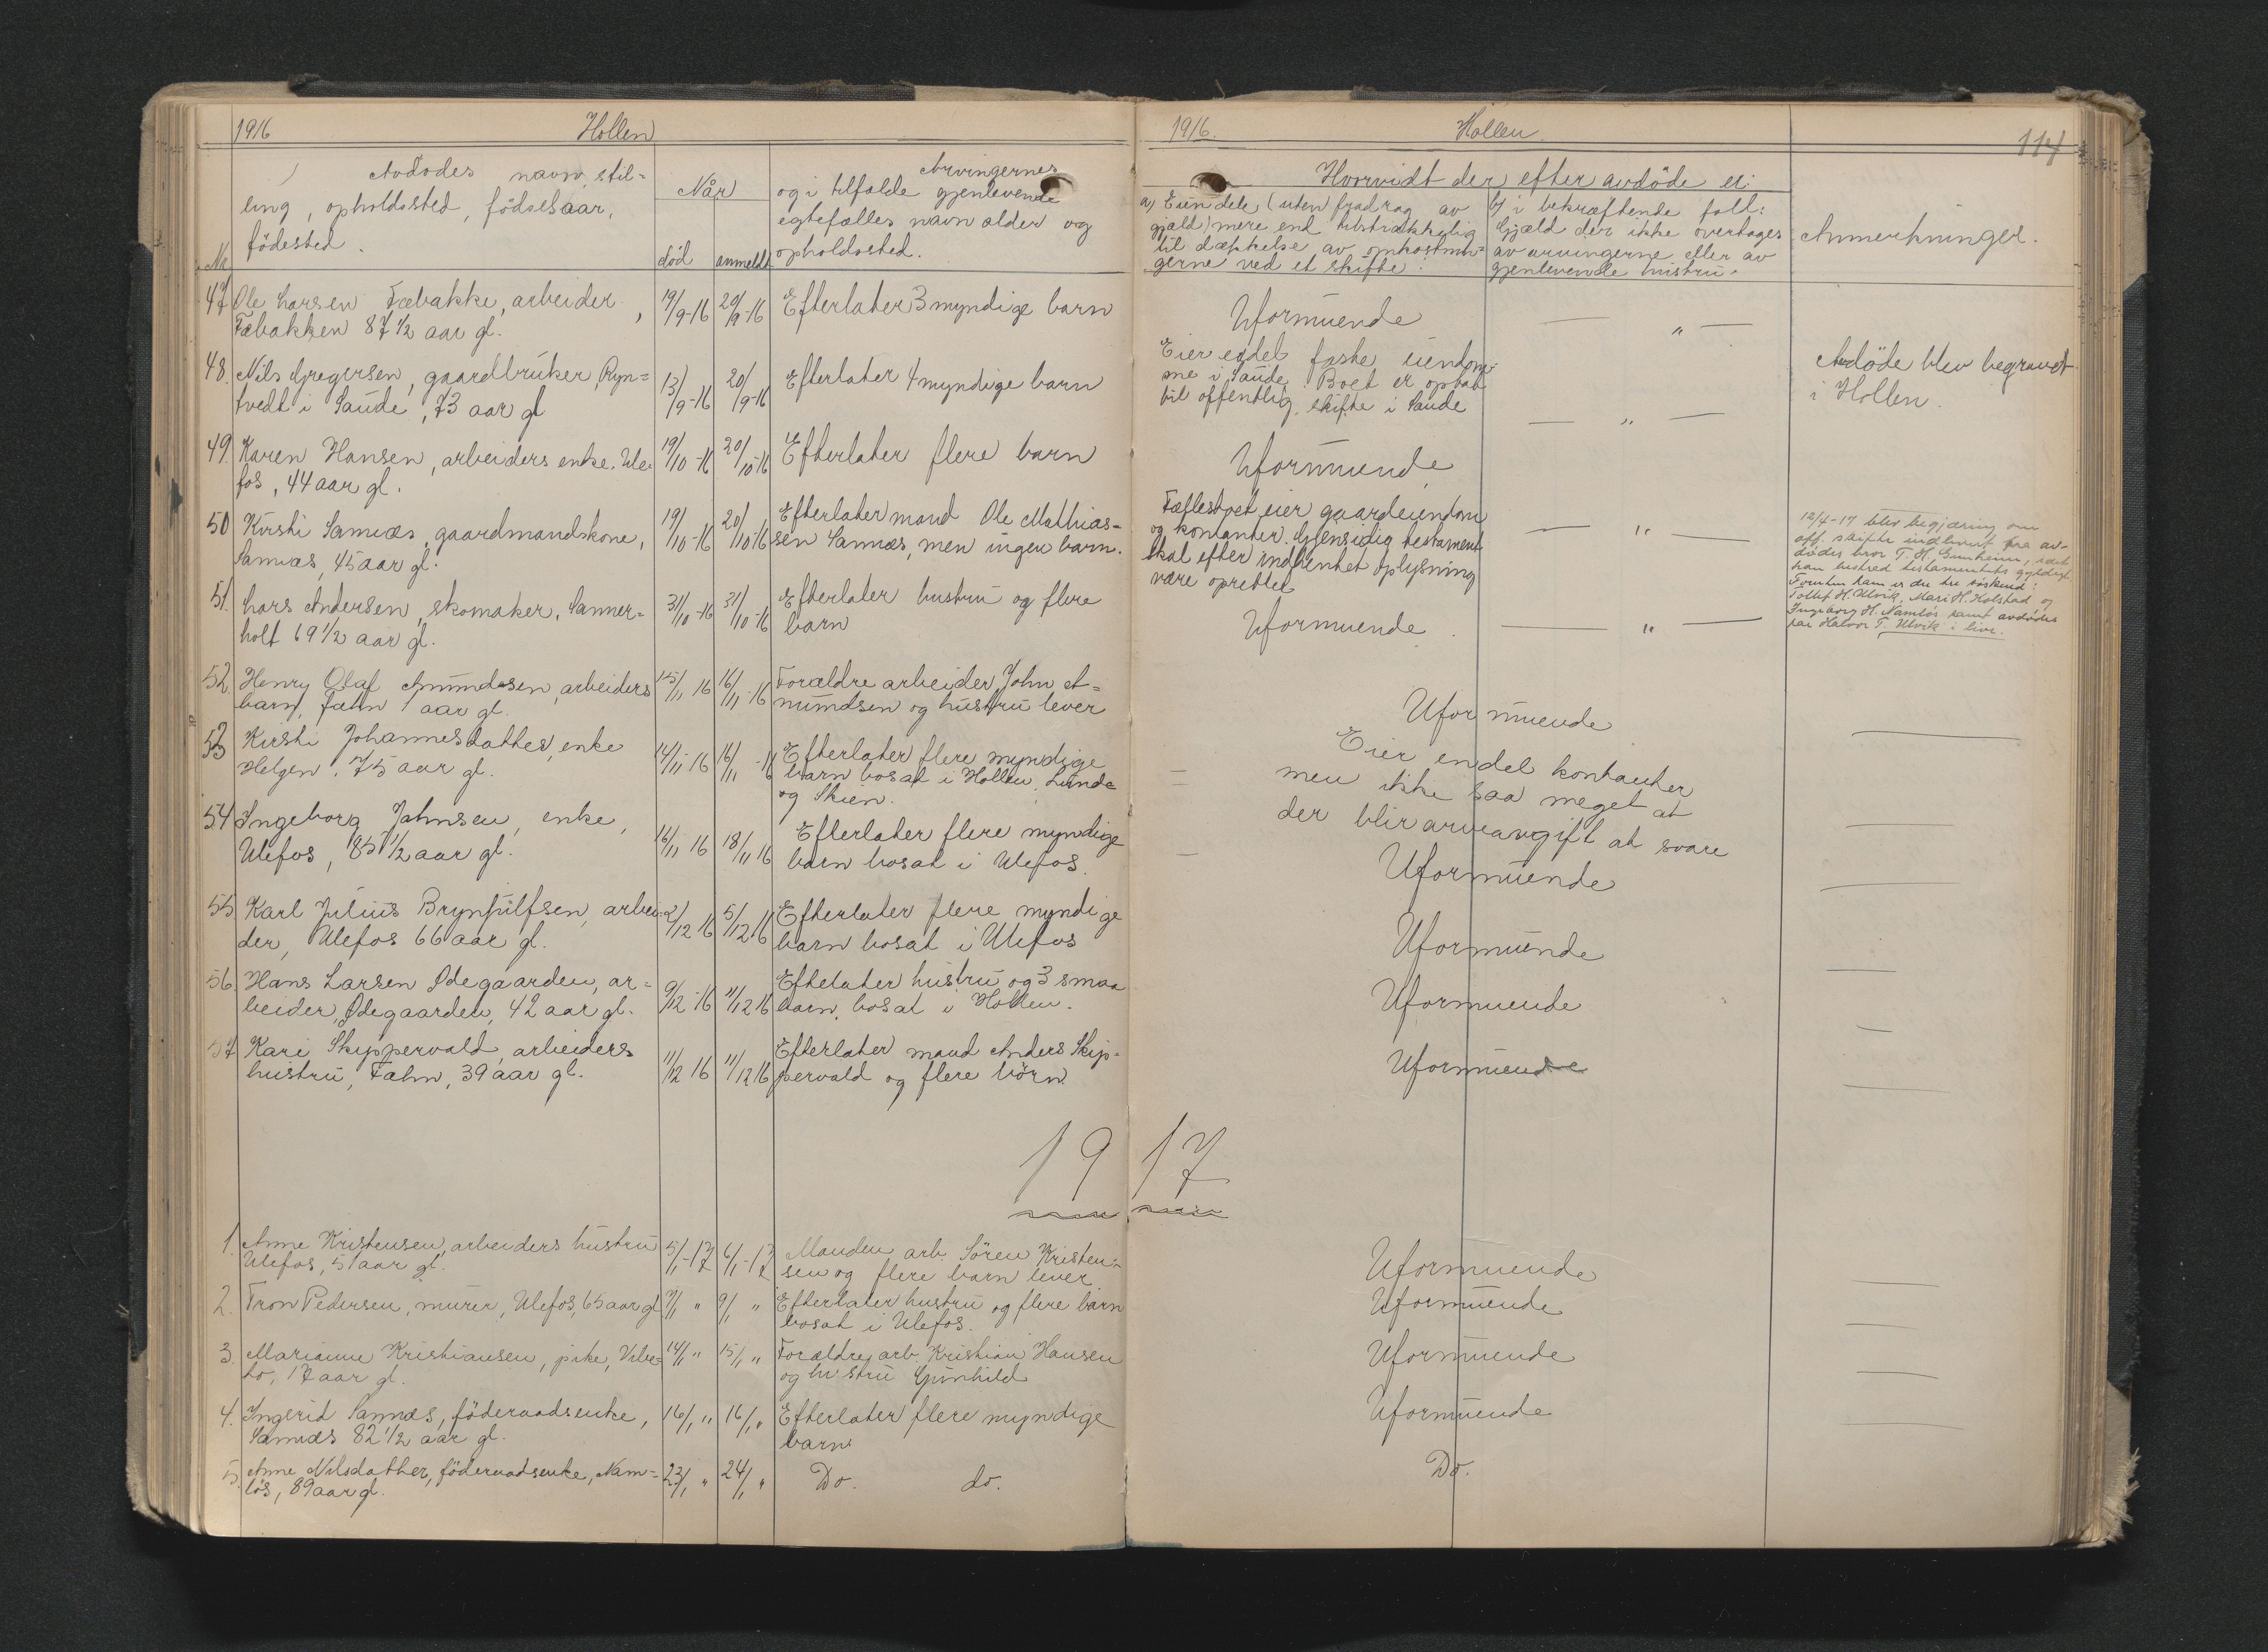 1916 Hollen
Avdödes navn, stil=
ling, opholdssted, födselsaar,
födested.
No
Når
död anmeldt
Arvingernes
og i tilfælde gjenlevende
egtefælles navn alder og
opholdssted.
47 Ole Larsen Fæbakke, arbeider,
Fæbakken 87 1/2 aar gl.
19/9-16 20/9-16
Efterlater 3 myndige barn
48. Nils Gregersen, gaardbruker, Ryn=
tvedt i Saude, 73 aar gl
13/9-16 20/9-16
Efterlater 4 myndige barn
49. Karen Hansen, arbeiders enke. Ule=
fos, 44 aar gl.
19/10-16 20/10-16
Efterlater flere barn
50 Kirsti Sannæs, gaardmandskone,
Sannæs, 45 aar gl.
19/10-16 20/10-16
Efterlater mand Ole Mathias=
sen Sannæs, men ingen barn.
51. Lars Andersen, skomaker, Sanner=
holt 69 1/2 aar gl.
31/10-16 31/10-16
Efterlater hustru og flere
barn
52. Henry Olaf Amundsen, arbeiders
barn, Fæhn 1 aar gl.
15/11 16 16/11-16
Forældre arbeider John A=
mundsen og hustru lever
53 Kirsti Johannesdatter, enke
Helgen, 75 aar gl.
14/11-16 16/11-16
Efterlater flere myndige
barn bosat i Hollen, Lunde
og Skien.
54 Ingeborg Johnsen, enke,
Ulefos, 85 1/2 aar gl.
16/11 16 18/11 16
Efterlater flere myndige
barn bosat i Ulefos.
55 Karl Julius Brynjulfsen, arbei=
der, Ulefos 66 aar gl.
2/12 16 5/12 16
Efterlater flere myndige
barn bosat i Ulefos
56. Hans Larsen Ødegaarden, ar=
beider, Ødegaarden, 42 aar gl.
9/12-16 11/12 16
Eftelater hustru og 3 smaa
barn, bosat i Hollen.
57 Kari Skyppervald, arbeiders
hustru, Fæhn, 39 aar gl.
11/12 16 11/12 16
Efterlater mand Anders Skip-
pervald og flere börn
19 17
1. Anne Kristensen, arbeiders hustru
Ulefos, 51 aar gl.
5/1-17 6/1-17
Manden arb. Sören Kristen=
sen og flere barn lever
2. Tron Pedersen, murer, Ulefos, 65 aar gl
7/1 " 9/1 "
Efterlater hustru og flere barn
bosat i Ulefos.
3. Marianne Kristiansen, pike, Vibe=
to, 17 aar gl.
14/1 " 15/1 "
Forældre arb. Kristian Hansen
og hustru Gunhild
4. Ingerid Sannæs, föderaadsenke,
Sannæs 82 1/2 aar gl.
16/1 " 16/1 "
Efterlater flere myndige
barn
5. Anne Nilsdatter, föderaadsenke, Nam=
lös, 89 aar gl.
23/1 " 24/1 "
Do. do.
1916. Hollen 114
Hvorvidt der efter avdöde er:
a) Eiendele (uten fradrag av
gjæld) mere end tilstrækkelig
til dækkelse av omkostnin=
gerne ved et skifte.
b) i bekræftende fald:
Gjæld der ikke overtages
av arvingerne eller av
gjenlevende hustru.
Anmerkninger.
Uformuende — " —
Eier endel faste eiendom-
me i Saude. Boet er optat
til offentlig skifte i Saude — " —
Avdöde blev begravet
i Hollen.
Uformuende
Fællesboet eier gaardeiendom
og kontanter. Gjensidig testament
skal efter indhentet oplysning
være oprettet — " —
12/4-17 blev begjæring om
off. skifte indlevert fra av-
dödes bror T. H. Gunheim, idet
han bestred testamentets gyldigh.
Foruten ham er der tre söskend:
Tollef H. Ulvik, Mari H. Kolstad og
Ingeborg H. Namlös samt avdödes
far Halvor T. Ulvik i live.
Uformuende. — " —
Uformuende
Eier endel kontanter
men ikke saa meget at
der blir arveavgift at svare
Uformuende
Uformuende
Uformuende
Uformuende
Uformuende
Uformuende
Uformuende
Uformuende
Do.